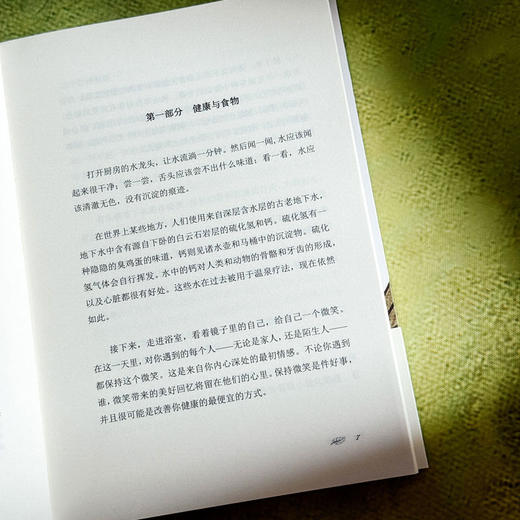 第一部分 健康与食物
打开厨房的水龙头,让水流淌一分钟。然后闻一闻,水应该闻
起来很干净;尝一尝,舌头应该尝不出什么味道;看一看,水应
该清澈无色,没有沉淀的痕迹。
在世界上某些地方,人们使用来自深层含水层的古老地下水,
地下水中含有源自下卧的白云石岩层的硫化氢和钙。硫化氢有一
种隐隐的臭鸡蛋的味道,钙则见诸水壶和马桶中的沉淀物。硫化
氢气体会自行挥发。水中的钙对人类和动物的骨骼和牙齿的形成,
以及心脏都很有好处。这些水在过去被用于温泉疗法,现在依然
如此。
接下来,走进浴室,看着镜子里的自己,给自己一个微笑。
在这一天里,对你遇到的每个人——无论是家人,还是陌生人——
都保持这个微笑。这是来自你内心深处的最初情感。不论你遇到
谁,微笑带来的美好回忆将留在他们的心里。保持微笑是件好事,
并且很可能是改善你健康的最便宜的方式。
7